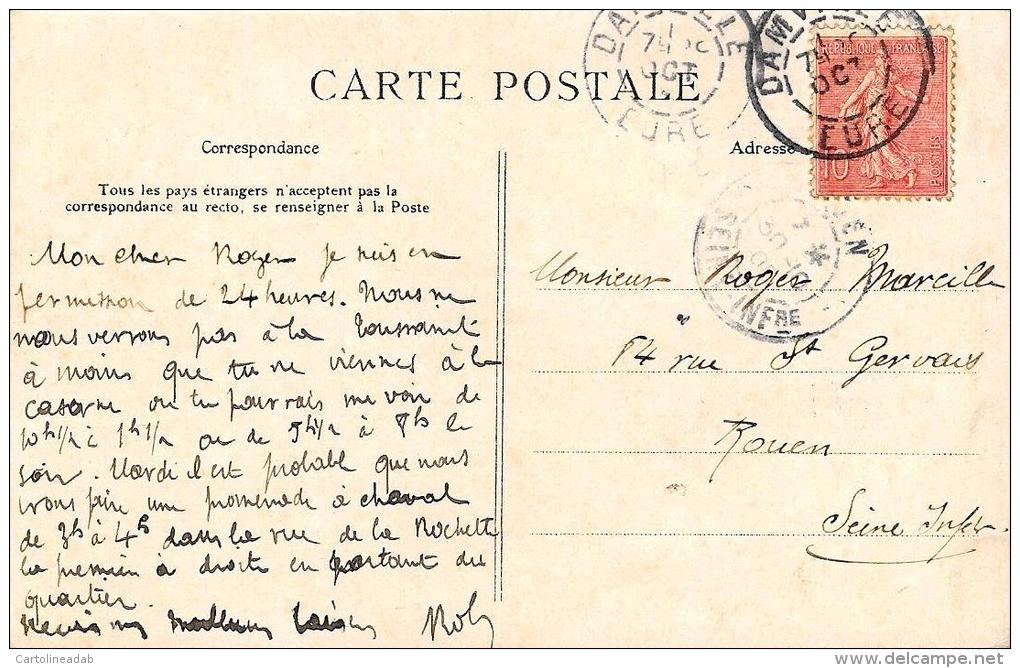 DAMVILLE
74
OCT
EURE
DAMVILLE
74
OCT
EURE
REPUBLIQUE FRANÇAISE
10
POSTES
CARTE POSTALE
Correspondance
Adresse
Tous les pays étrangers n'acceptent pas la
correspondance au recto, se renseigner à la Poste
ROUEN
SEINE-INFRE
Mon cher Roger je suis en
permission de 24 heures. Nous ne
nous verrons pas à la Toussaint
à moins que tu ne viennes à la
caserne ou tu pourrais me voir de
10h1/2 à 1h1/2 ou de 5h1/2 à 8h le
soir. Mardi il est probable que nous
irons faire une promenade à cheval
de 3h à 4h dans la rue de la Rochette
la premier à droite en partant du
quartier.
meilleurs baisers Rob
Monsieur Roger Marcille
14 rue St Gervais
Rouen
Seine Infre
Cartolineadab
delcampe.net